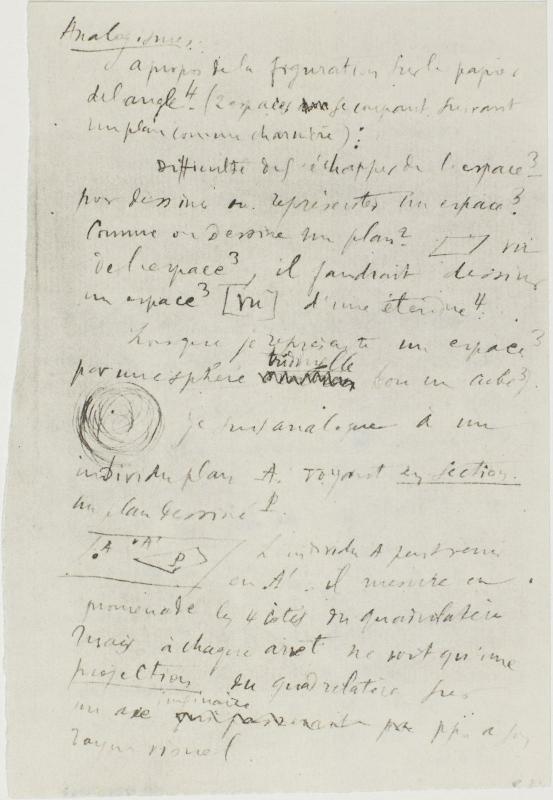 Analogismes:
à propos de la figuration sur le papier
de l'angle⁴. (2 espaces se coupant suivant
un plan comme charnière) :
Difficulté de s'échapper de l'espace³
pour dessiner ou représenter un espace³.
Comme on dessine un plan² vu
de l'espace³, il faudrait dessiner
un espace³ [vu] d'une étendue⁴.
Lorsque je représente un espace³
par une sphère (ou un cube³)
je suis analogue à un
individu plan A. voyant en section
un plan dessiné P.
A A' P L'individu A peut venir
en A'. il mesure en
promenade les 4 côtés du quadrilatère
mais à chaque arrêt ne voit qu'une
projection du quadrilatère sur
un axe imaginaire pp. à son
rayon visuel